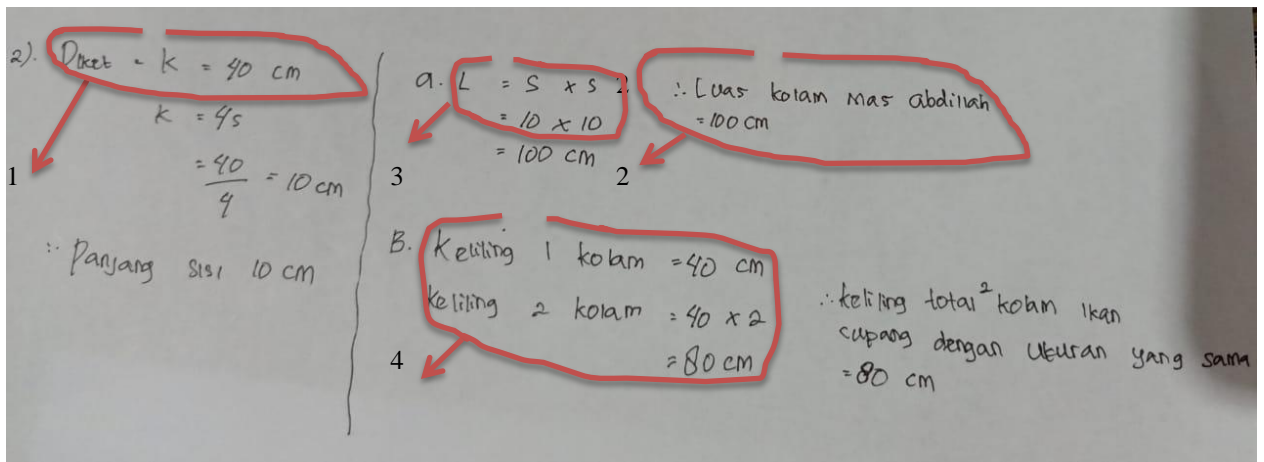 2). Diket - K = 40 cm
K = 4s
= 40/4 = 10 cm
∴ Panjang sisi 10 cm
1
a. L = S x S
= 10 x 10
= 100 cm
3
2
∴ Luas kolam mas abdillah
= 100 cm
2
B. Keliling 1 kolam = 40 cm
keliling 2 kolam = 40 x 2
= 80 cm
4
∴ keliling total 2 kolam ikan
cupang dengan ukuran yang sama
= 80 cm